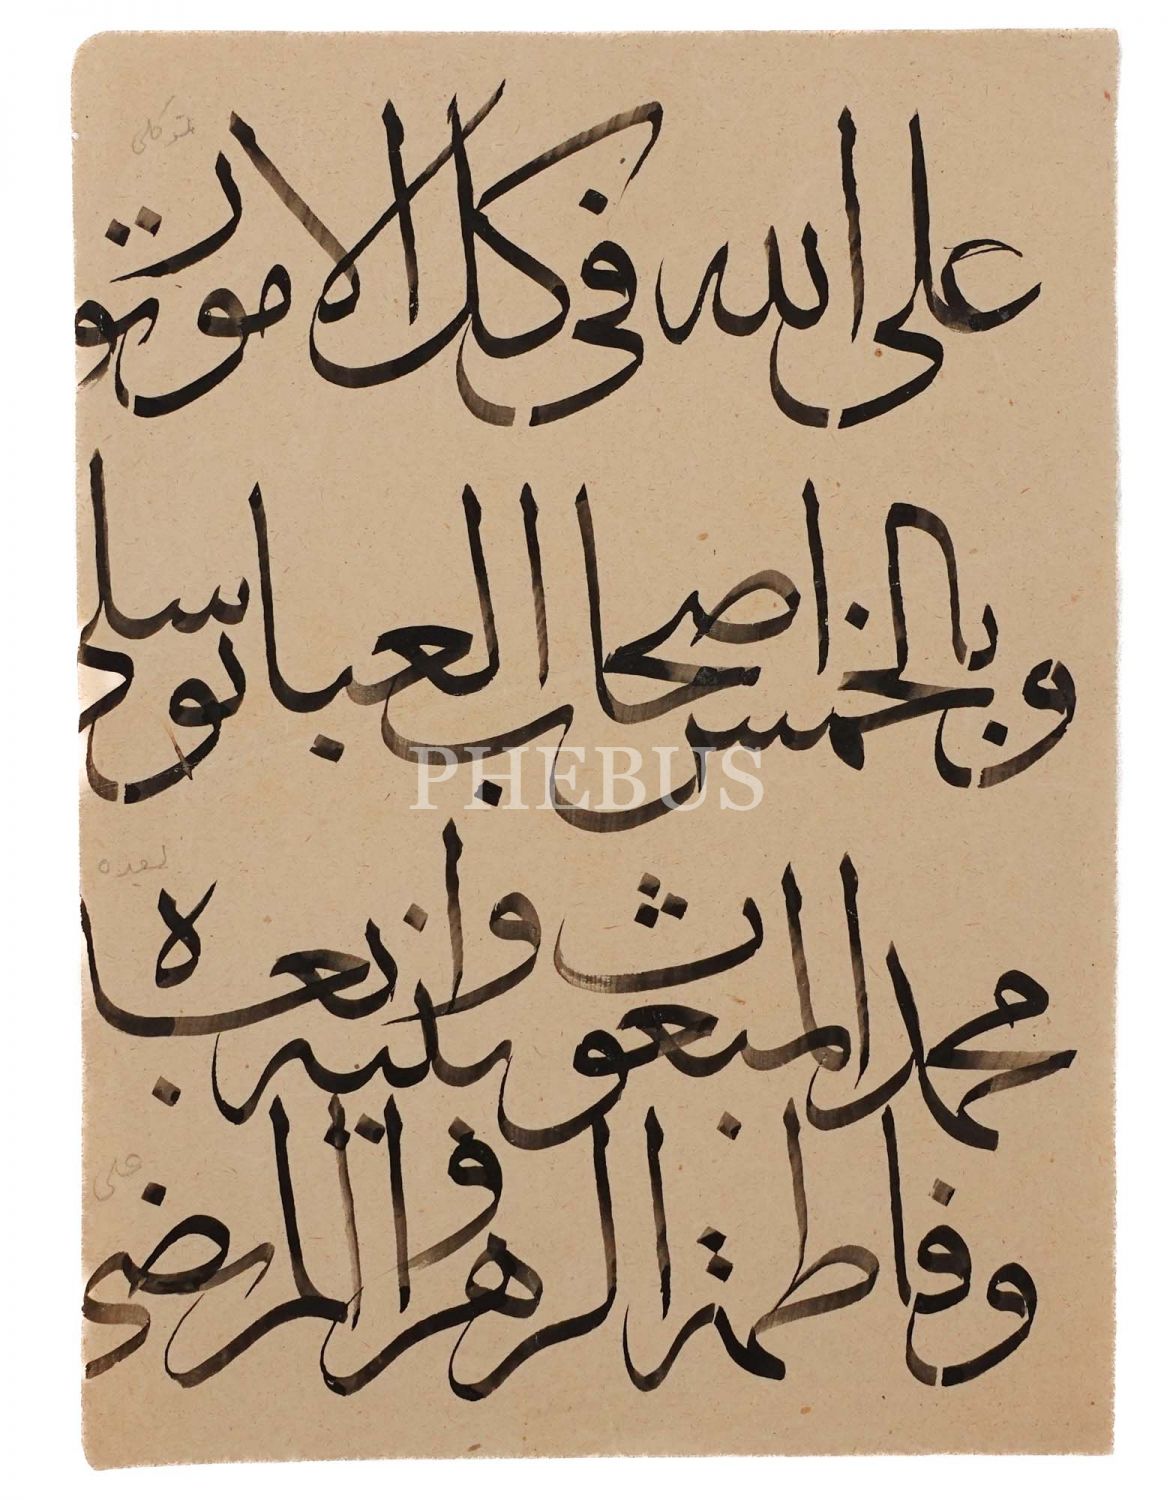 توكلى
على الله فى كل الامور تو
وبالخمس اصحاب العبا توسلى
بعده
محمد المبعوث وابنيه بعده
على
وفاطمة الزهرا والمرتضى
PHEBUS